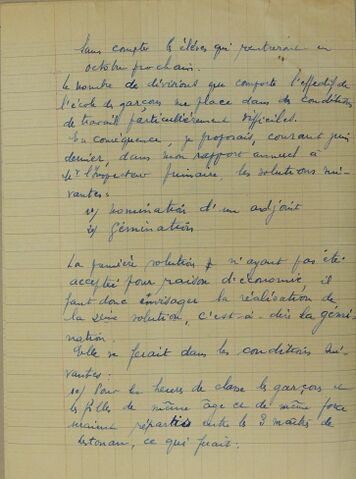 Sans compter les élèves qui rentreront en
octobre prochain.
Le nombre de divisions que comporte l'effectif de
l'école de garçons me place dans des conditions
de travail particulièrement difficiles.
En conséquence, je proposais, courant juin
dernier, dans mon rapport annuel à
Mr l'Inspecteur Primaire, les solutions sui-
vantes:
1°/ nomination d'un adjoint
2°/ Gémination
La première solution n'ayant pas été
acceptée pour raison d'économie, il
faut donc envisager la réalisation de
la 2ème solution, c'est-à-dire la gémi-
nation.
Elle se ferait dans les conditions sui-
vantes:
1°/ Pour les heures de classe les garçons et
les filles de même âge et de même force
seraient répartis entre les 3 maîtres de
, ce qui ferait: